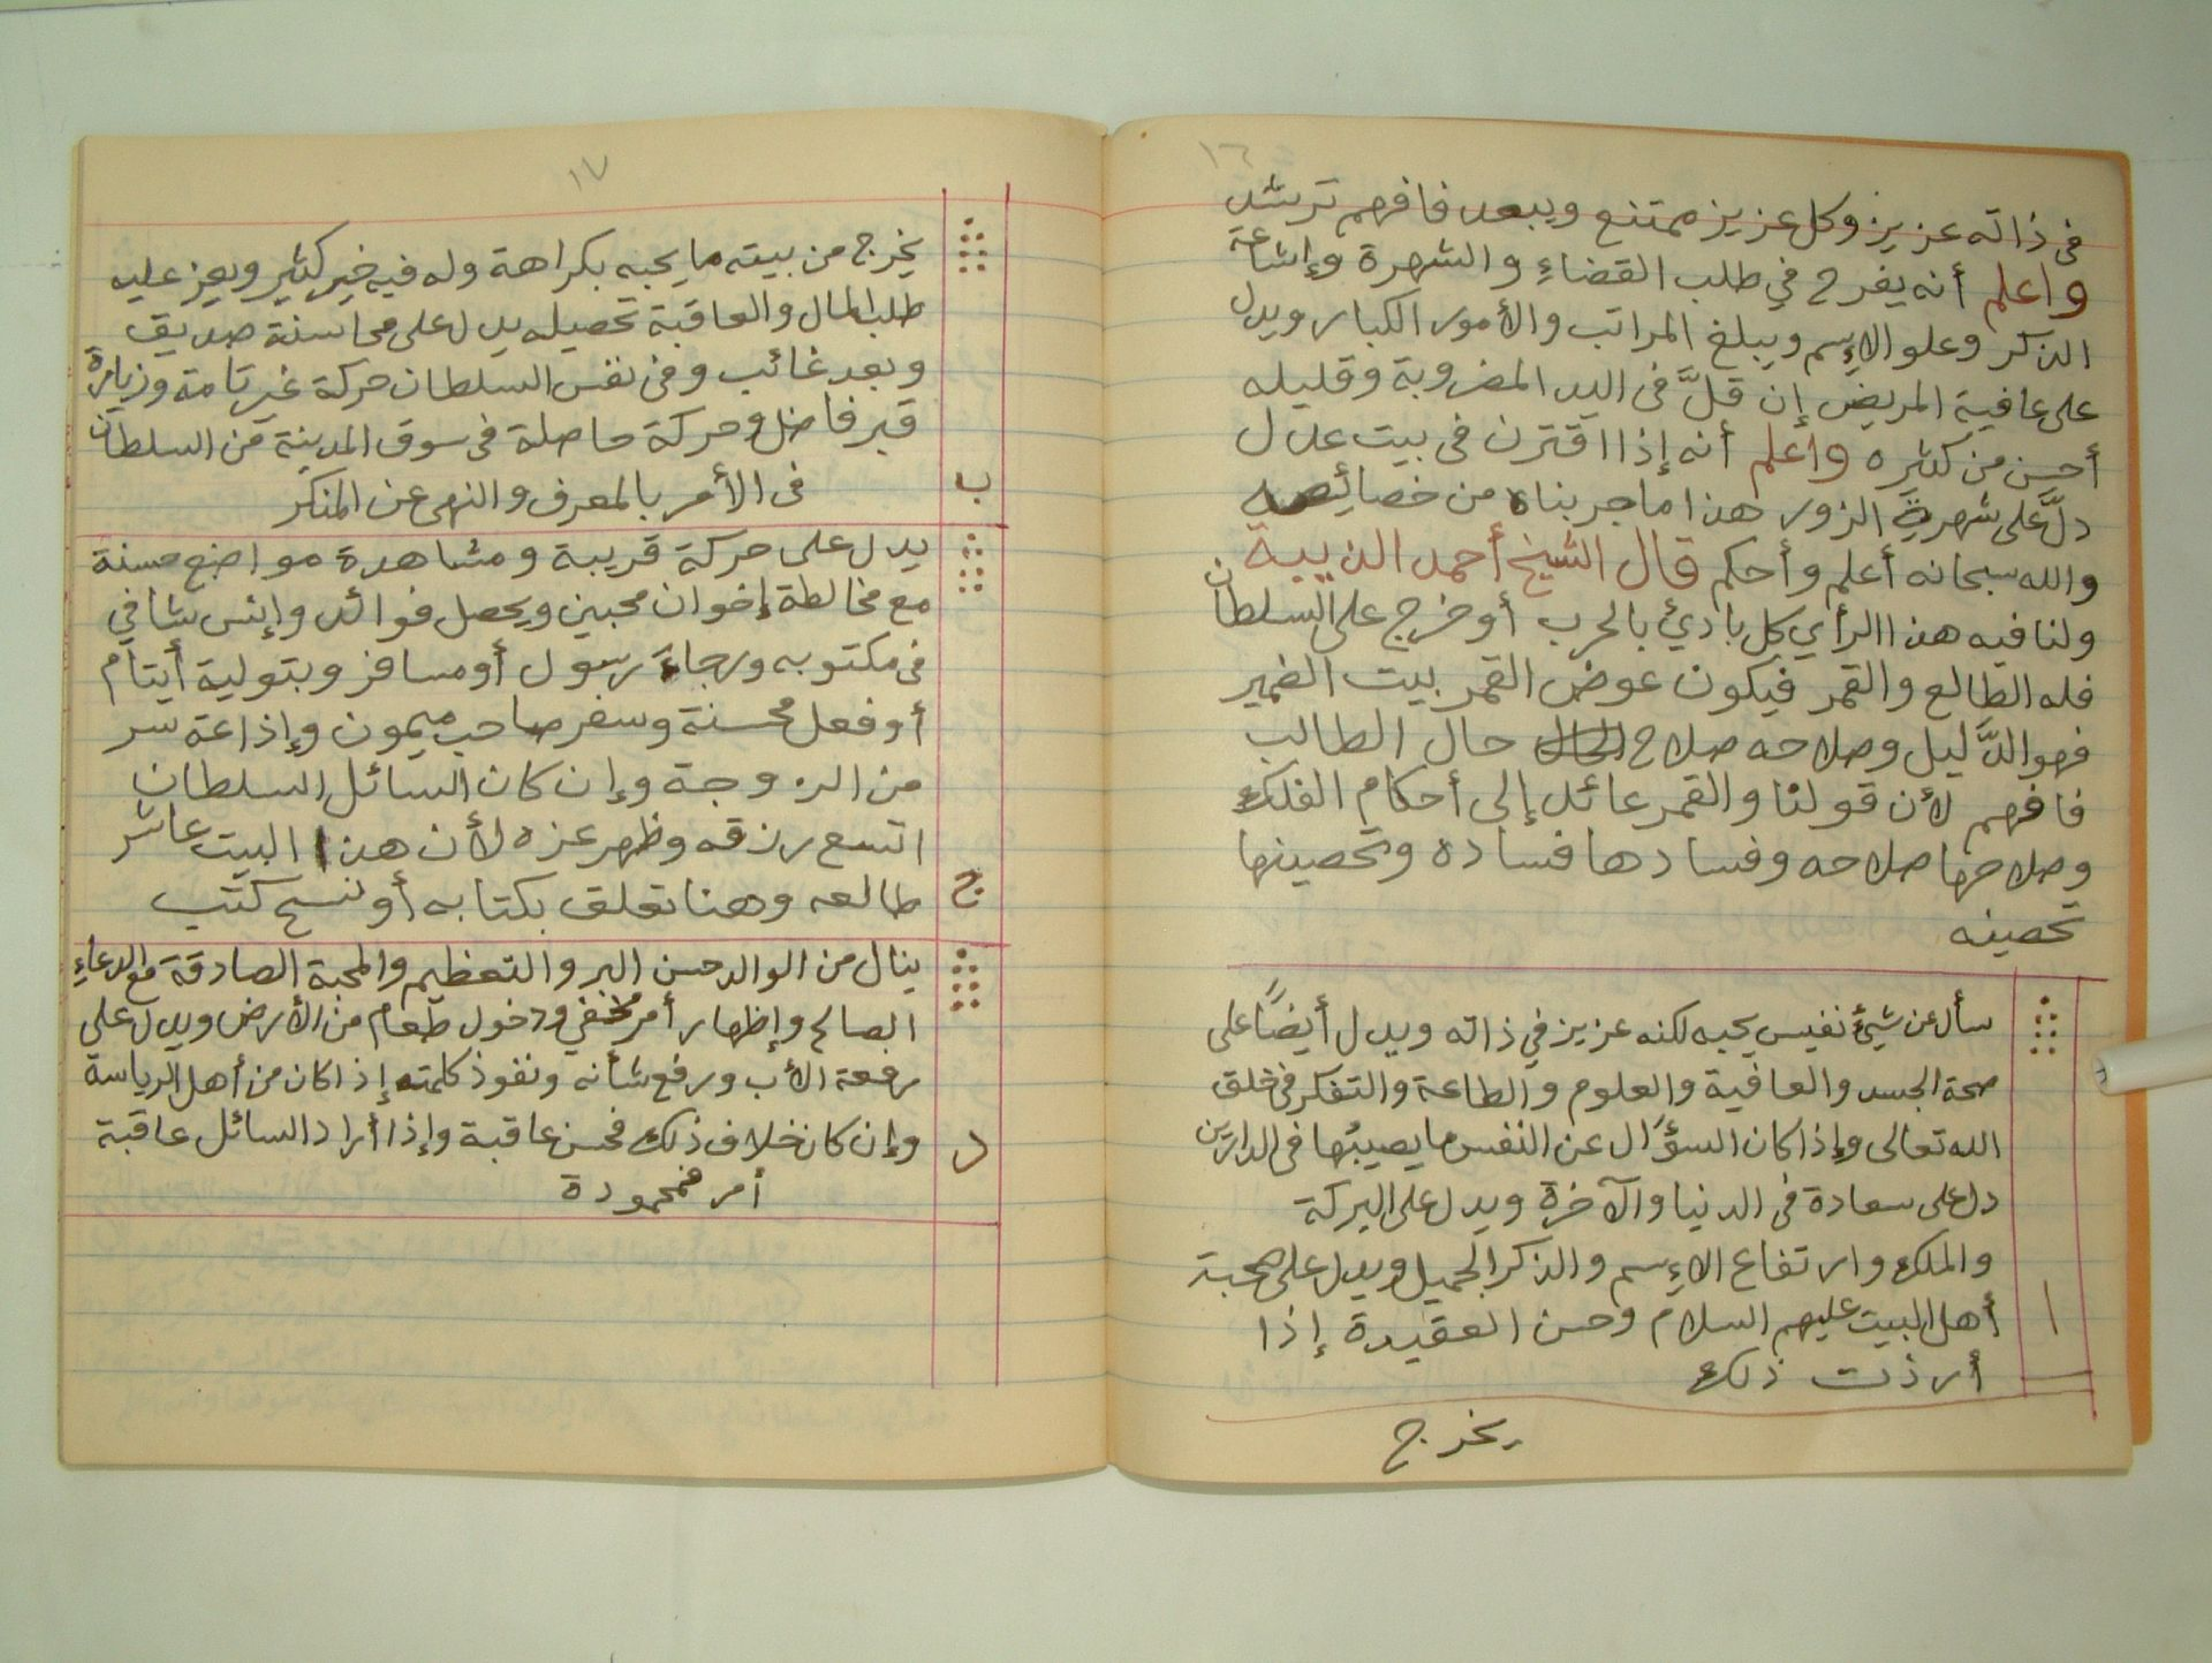 ١٦
فى ذاته عزيز وكل عزيز ممتنع ويبعد فافهم ترشد
واعلم أنه يفرح في طلب القضاء والشهرة وإشاعة
الذكر وعلو الإسم ويبلغ المراتب والأمور الكبار ويدل
على عافية المريض إن قلَّ فى اليد المضروبة وقليله
أحسن من كثيره واعلم أنه إذا اقترن فى بيت عدل
دلَّ على شهرة الزور هذا ما جربناه من خصائصه
والله سبحانه أعلم وأحكم قال الشيخ أحمد الذيبية
ولنا فيه هذا الرأي كل بادئ بالحرب أو خرج على السلطان
فله الطالع والقمر فيكون عوض القمر بيت الضمير
فهو الدَّليل وصلاحه صلاح حال الطالب
فافهم لأن قولنا والقمر عائد إلى أحكام الفلك
وصلاحها صلاحه وفسادها فساده وتحصينها
تحصينه
سأل عن شيئ نفيس يحبه لكنه عزيز في ذاته ويدل أيضًا على
صحة الجسد والعافية والعلوم والطاعة والتفكر فى خلق
الله تعالى وإذا كان السؤال عن النفس ما يصيبها فى الدارين
دل على سعادة فى الدنيا والآخرة ويدل على البركة
والملك وارتفاع الإسم والذكر الجميل ويدل على محبة
أهل البيت عليهم السلام وحسن العقيدة إذا
ا
أرذت ذلك
يخرج
١٧
يخرج من بيته ما يحبه بكراهة وله فيه خير كثير ويعز عليه
طلب المال والعاقبة تحصيله يدل على محاسنة صديق
وبعد غائب وفى نفس السلطان حركة غير تامة وزيارة
قبر فاضل وحركة حاصلة فى سوق المدينة من السلطان
ب
فى الأمر بالمعرف والنهى عن المنكر
يدل على حركة قريبة ومشاهدة مواضع حسنة
مع مخالطة إخوان محبين ويحصل فوائد وإنس شافي
فى مكتوبه ورجاء رسول أو مسافر وبتولية أيتام
أو فعل محسنة وسفر صاحب ميمون وإذاعة سر
من الزوجة وإن كان السائل السلطان
اتسع رزقه وظهر عزه لأن هذا البيت عاشر
ج
طالعه وهنا تعلق بكتابه أو نسخ كتب
ينال من الوالد حسن البر والتعظيم والمحبة الصادقة مع الدعاء
الصالح وإظهار أمر مخفي ودخول طعام من الأرض ويدل على
رفعة الأب ورفع شأنه ونفوذ كلمته إذا كان من أهل الرياسة
د
وإن كان خلاف ذلك فحسن عاقبة وإذا أراد السائل عاقبة
أمر فمحمودة